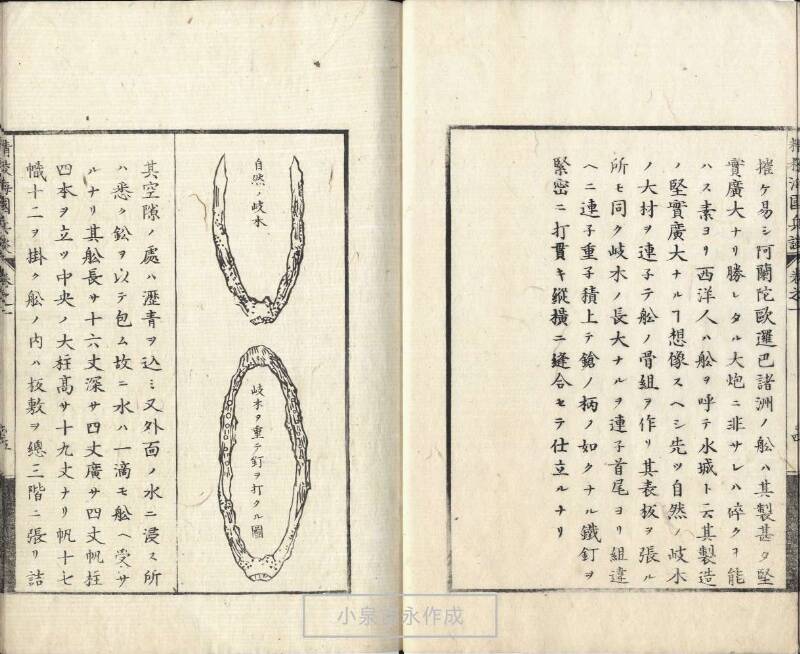 摧ケ易シ阿蘭陀歐邏巴諸洲ノ舩ハ其製甚タ堅
實廣大ナリ勝レタル大炮ニ非サレハ碎クヿ能
ハス素ヨリ西洋人ハ舩ヲ呼テ水城ト云其製造
ノ堅實廣大ナルヿ想像スヘシ先ツ自然ノ岐木
ノ大材ヲ連子テ舩ノ骨組ヲ作リ其表板ヲ張ル
所モ同ク岐木ノ長大ナルヲ連子首尾ヨリ組違
ヘニ連子重子積上テ鎗ノ柄ノ如クナル鐵釘ヲ
緊密ニ打貫キ縱橫ニ縫合セテ仕立ルナリ
自然ノ岐木
岐木ヲ重テ釘ヲ打タル圖
其空隙ノ處ハ瀝青ヲ込ミ又外面ノ水ニ浸ス所
ハ悉ク鈆ヲ以テ包ム故ニ水ハ一滴モ舩ヘ受サ
ルナリ其舩長サ十六丈深サ四丈廣サ四丈帆柱
四本ヲ立ツ中央ノ大柱高サ十九丈ナリ帆十七
幟十二ヲ掛ク舩ノ内ハ板敷ヲ總三階ニ張リ詰
海國兵談
小泉吉永作成